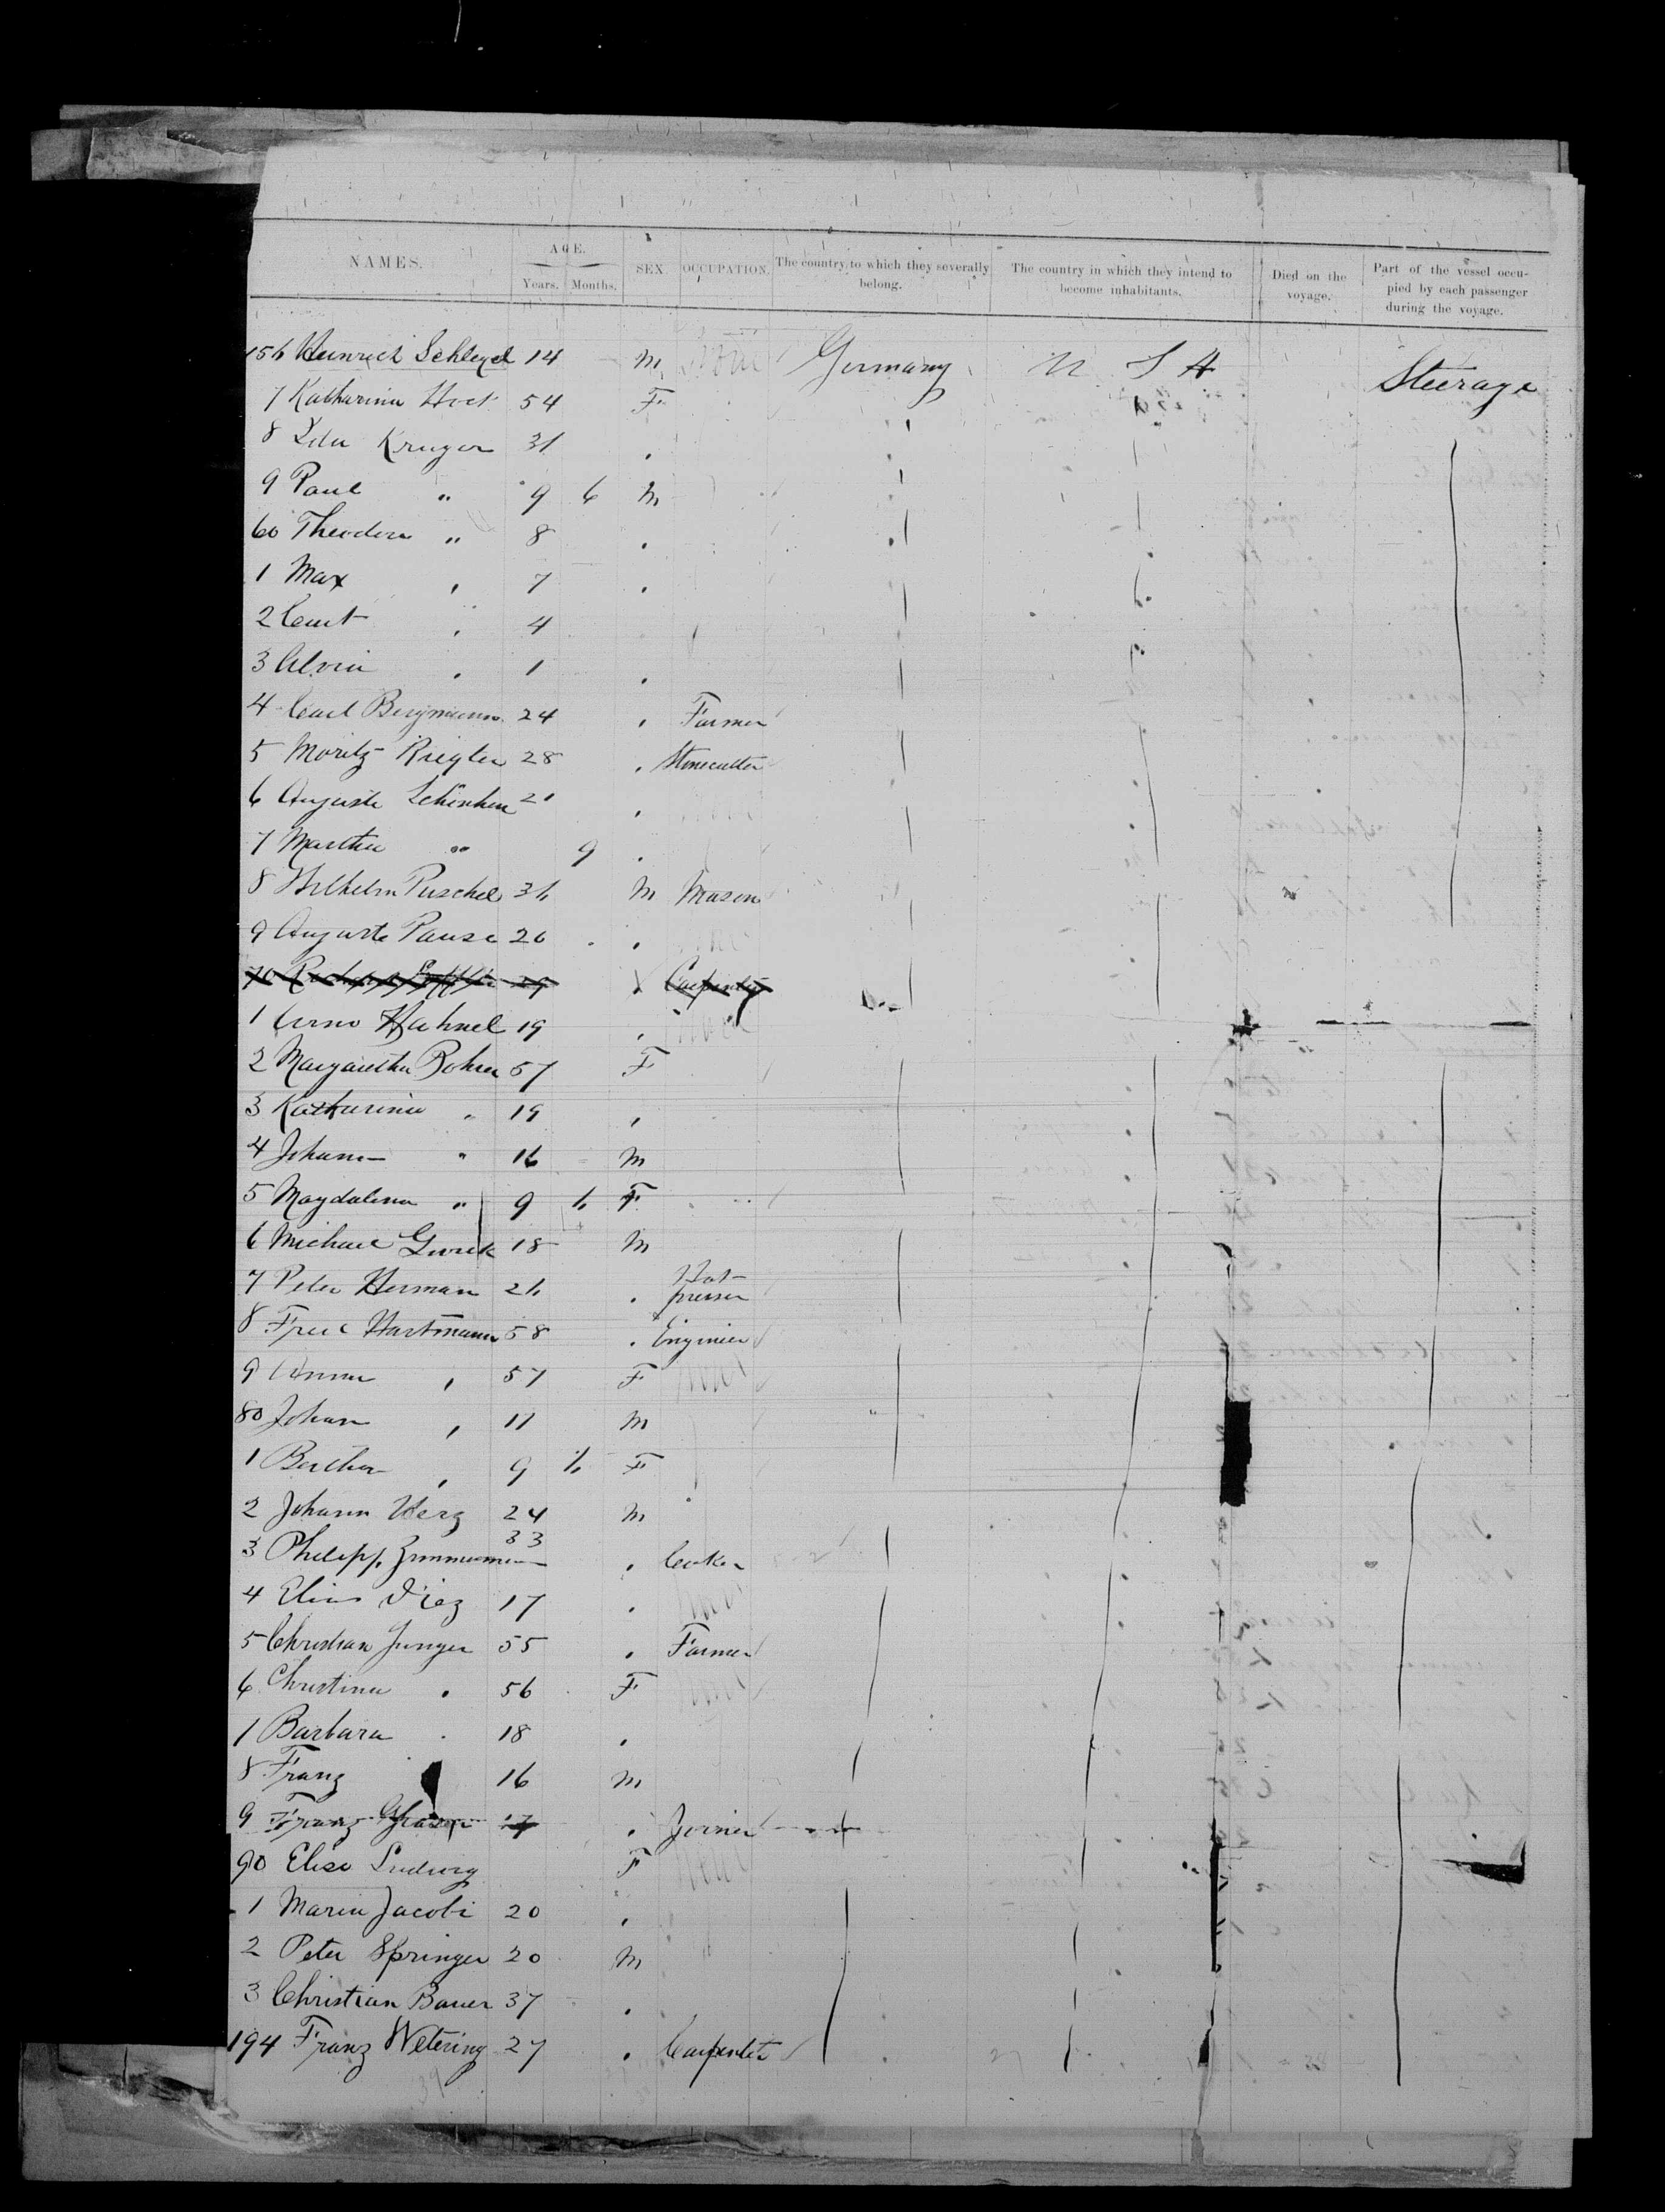 NAMES. AGE. Years. Months. SEX. OCCUPATION. The country to which they severally belong. The country in which they intend to become inhabitants. Died on the voyage. Part of the vessel occupied by each passenger during the voyage.
156 Heinrich Schlegel 14 M None Germany U S A Steerage
7 Katharina 54 F
8 Ida Kruger 31 .
9 Paul " 9 6 M
60 Theodore " 8 .
1 Max , 7 .
2 Curt , 4
3 Alvin . 1 .
4 Carl Bergmann 24 . Farmer
5 Moritz Riegler 28 . Stonecutter
6 Auguste 21 .
7 Martha " 9 .
8 Wilhelm Puschel 36 M Mason
9 Auguste Pause 26 .
70 Carpenter
1 Arno Hahnel 19 .
2 Margaretha Rohrer 57 F
3 Katharina " 19 ,
4 Johann " 16 M
5 Magdalena " 9 6 F
6 Michael 18 M
7 Peter Herman 26 . Hat presser
8 Fred Hartmann 58 . Enginier
9 Anna , 57 F None
80 Johan , 11 M
1 Bertha , 9 6 F
2 Johann Herz 24 M
3 Philipp Zimmermann 33 .
4 Elias Diez 17 .
5 Christian Junger 55 . Farmer
6 Christina . 56 F
7 Barbara . 18 .
8 Franz 16 M
9 Franz 17 . Joiner
90 Elise Ludwig F None
1 Maria Jacobi 20 .
2 Peter Springer 20 M
3 Christian Bauer 37 .
194 Franz Wetering 27 . Carpenter